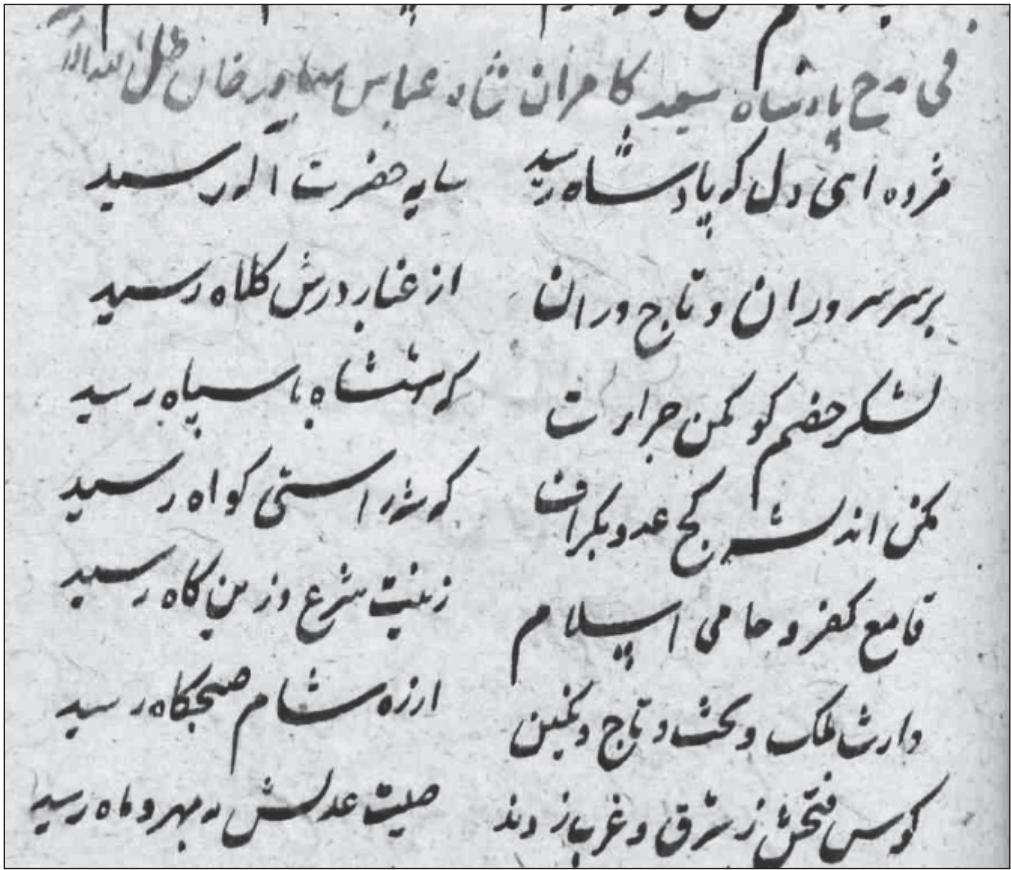 في مدح پادشاه سعید کامران شاه عباس بهادر خان ظل الله
مژده ای دل که پادشاه رسید سایه حضرت اله رسید
بر سر سروران و تاج وران از غبار درش کلاه رسید
لشکر خصم کو مکن جرات که شهنشاه با سپاه رسید
مکن اندیشه کج عدو بگزاف که شه راستی کواه رسید
قامع کفر و حامی اسلام زینت شرع و زین کاه رسید
وارث ملک و تخت و تاج و نگین از ره شام صبحگاه رسید
کوس فتحش ز شرق و غرب زدند صیت عدلش به مهر و ماه رسید